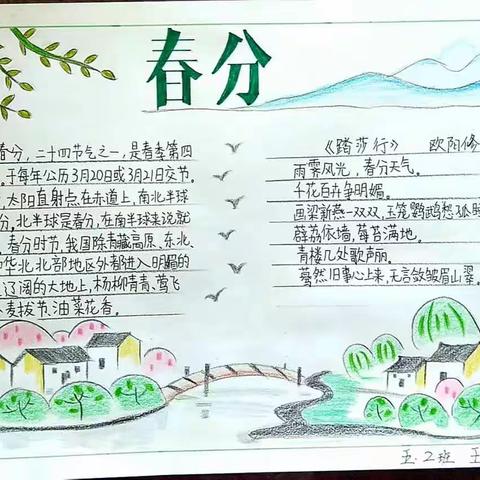 春分
春分，二十四节气之一，是春季第四
于每年公历3月20日或3月21日交节
太阳直射点在赤道上，南北半球
分。北半球是春分，在南半球来说就
春分时节，我国除青藏高原、东北、
华北北部地区外都进入明媚的
辽阔的大地上，杨柳青青、莺飞
麦拔节、油菜花香。
《踏莎行》 欧阳修
雨霁风光，春分天气。
千花百卉争明媚。
画梁新燕一双双，玉笼鹦鹉愁孤
薜荔依墙，莓苔满地。
青楼几处歌声丽。
蓦然旧事心上来，无言敛皱眉山翠。
五.2班